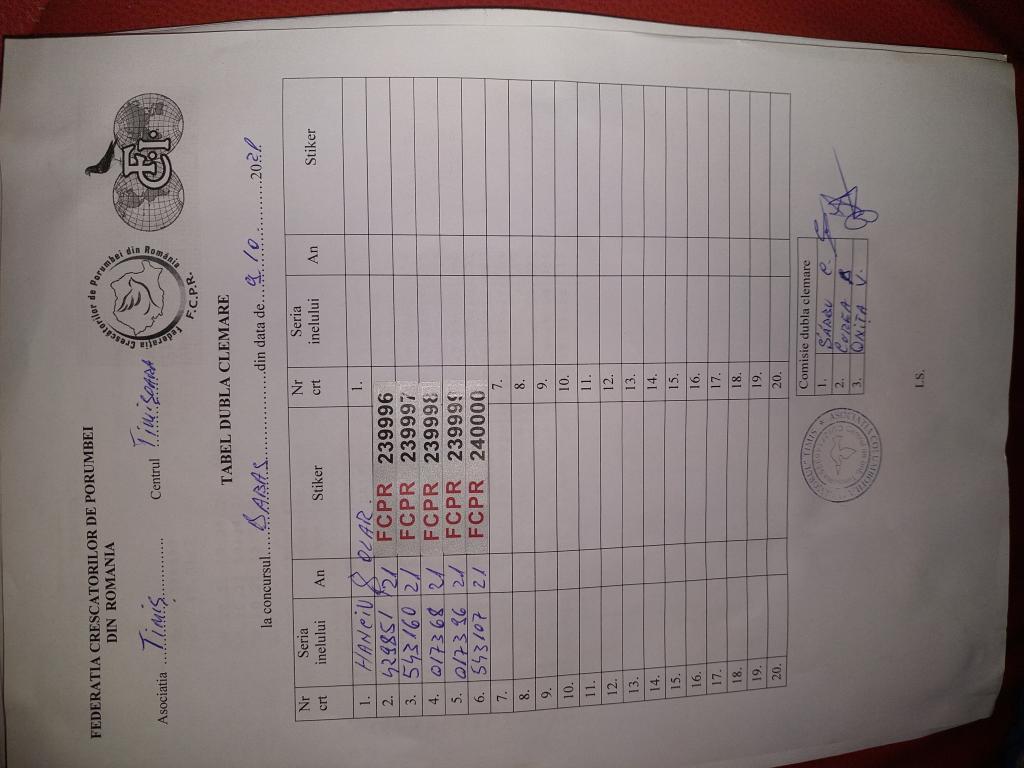 FEDERATIA CRESCATORILOR DE PORUMBEI
DIN ROMANIA
Federația Crescătorilor de Porumbei din România
F.C.P.R.
Asociatia ....Timiș............ Centrul Timisoara
TABEL DUBLA CLEMARE
la concursul.....BABAS.....................din data de....9/10..............2021
Nr crt Seria inelului An Stiker Nr crt Seria inelului An Stiker
1. HANCIU & OLAR. 1.
2. 429851 21 FCPR 239996
3. 543160 21 FCPR 239997
4. 017368 21 FCPR 239998
5. 017396 21 FCPR 239999
6. 543107 21 FCPR 240000
7. 7.
8. 8.
9. 9.
10. 10.
11. 11.
12. 12.
13. 13.
14. 14.
15. 15.
16. 16.
17. 17.
18. 18.
19. 19.
20. 20.
Comisie dubla clemare
1. C.
2. A
3. ONIȚA V.
I.S.